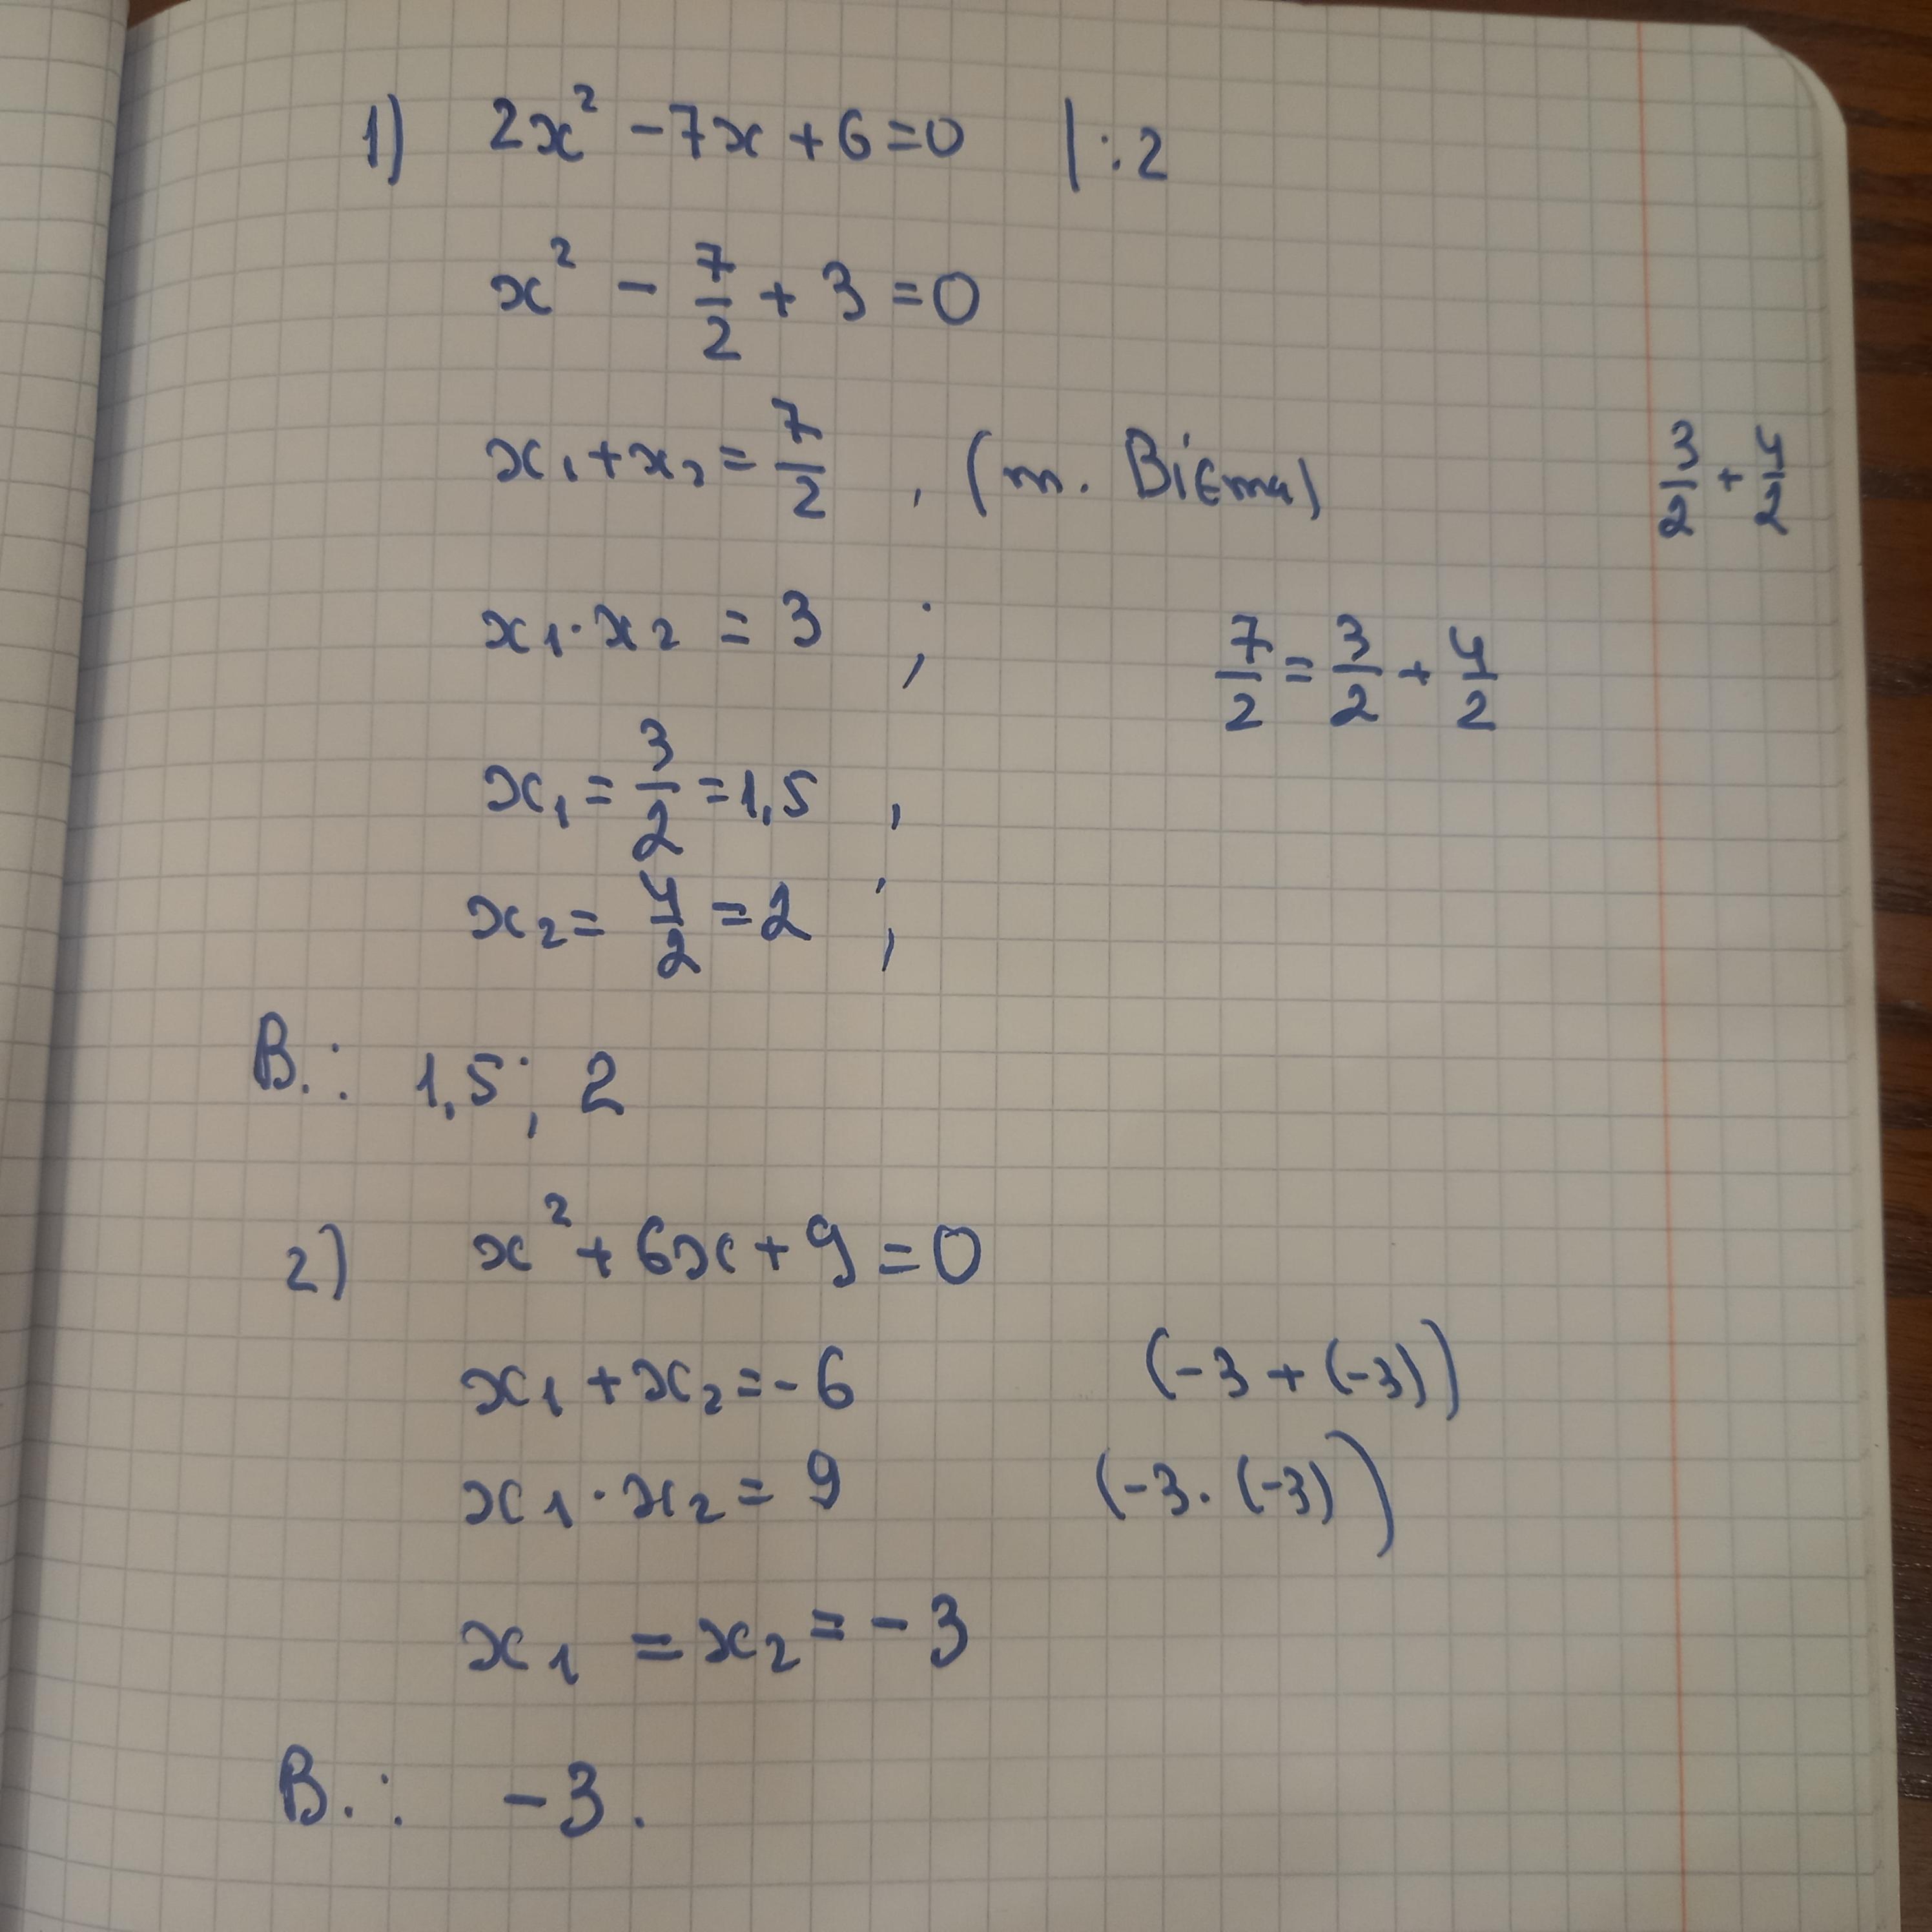 1) 2x² - 7x + 6 = 0 | : 2
x² - 7/2 + 3 = 0
x₁ + x₂ = 7/2 , (т. Вієта)
3/2 + 4/2
x₁ · x₂ = 3 ;
7/2 = 3/2 + 4/2
x₁ = 3/2 = 1,5 ,
x₂ = 4/2 = 2 ;
В.: 1,5 ; 2
2) x² + 6x + 9 = 0
x₁ + x₂ = - 6 (-3 + (-3))
x₁ · x₂ = 9 (-3 · (-3))
x₁ = x₂ = - 3
В.: -3.